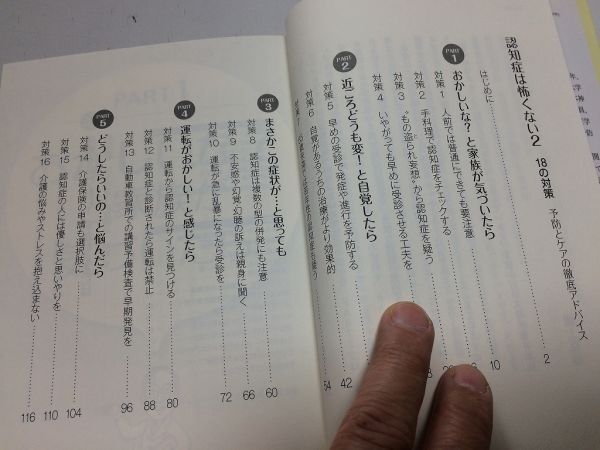 認知症は怖くない2 18の対策 予防とケアの徹底アドバイス
はじめに 2
PART 1 おかしいな?と家族が気づいたら
対策1 人前では普通にできても要注意 10
対策2 手料理で認知症をチェックする
対策3 “もの盗られ妄想”から認知症を疑う
対策4 いやがっても早めに受診させる工夫を
PART 2 近ごろどうも変!と自覚したら
対策5 早めの受診で発症や進行を予防する 42
対策6 自覚があるうちの治療がより効果的 54
PART 3 まさかこの症状が…と思っても 60
対策8 認知症は複数の型の併発にも注意 66
対策9 不安感や幻覚・幻聴の訴えは親身に聞く 72
対策10 運転が急に乱暴になったら受診を
PART 4 運転がおかしい!と感じたら
対策11 運転から認知症のサインを見つける 80
対策12 認知症と診断されたら運転は禁止 88
対策13 自動車教習所での講習予備検査で早期発見を 96
PART 5 どうしたらいいの…と悩んだら
対策14 介護保険の申請も選択肢に 104
対策15 認知症の人には優しさと思いやりを 110
対策16 介護の悩みやストレスを抱え込まない 116